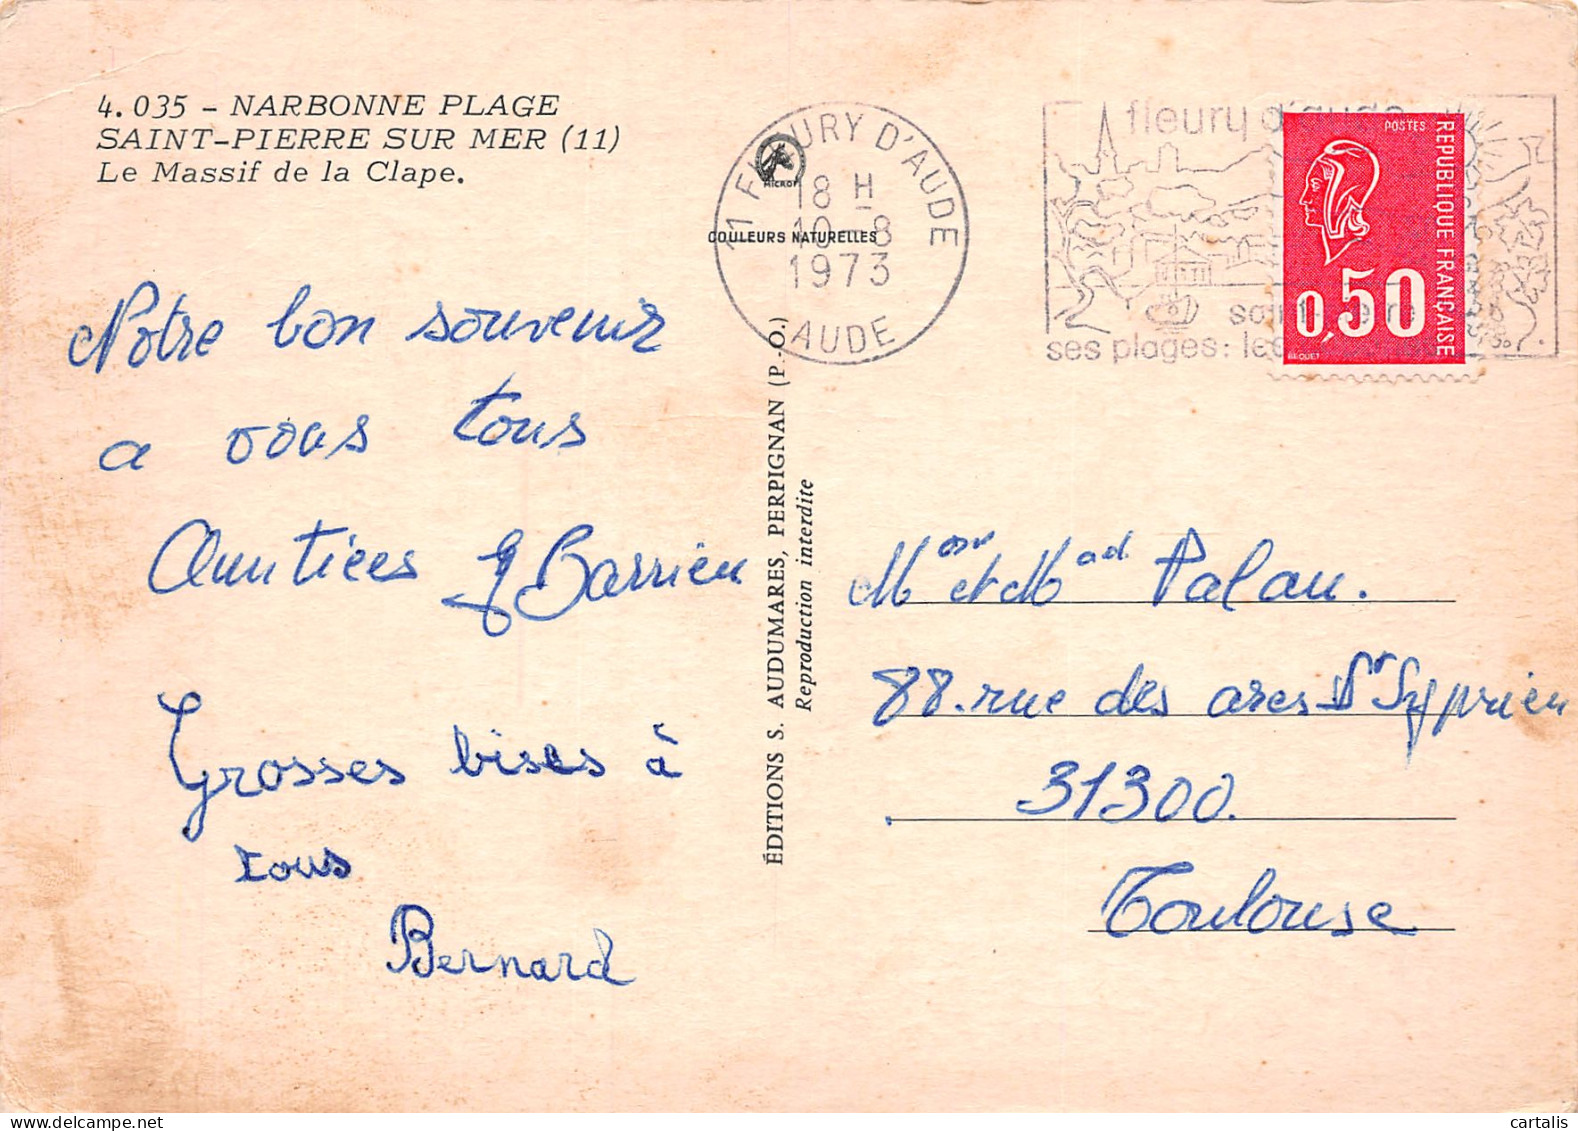 4. 035 - NARBONNE PLAGE
SAINT-PIERRE SUR MER (11)
Le Massif de la Clape.
Notre bon souvenir
a vous tous
Amitiees
Barrieu
Grosses bises à
tous
Bernard
ÉDITIONS S. AUDUMARES, PERPIGNAN (P.-O.)
Reproduction interdite
COULEURS NATURELLES
11 FLEURY D'AUDE
18 H
10-8
1973
AUDE
fleury d'aude
ses plages: les
POSTES
REPUBLIQUE FRANCAISE
0,50
BEQUET
Mosr et Mad Palau.
88. rue des arcs St Syprien
31300.
Toulouse
cartalis